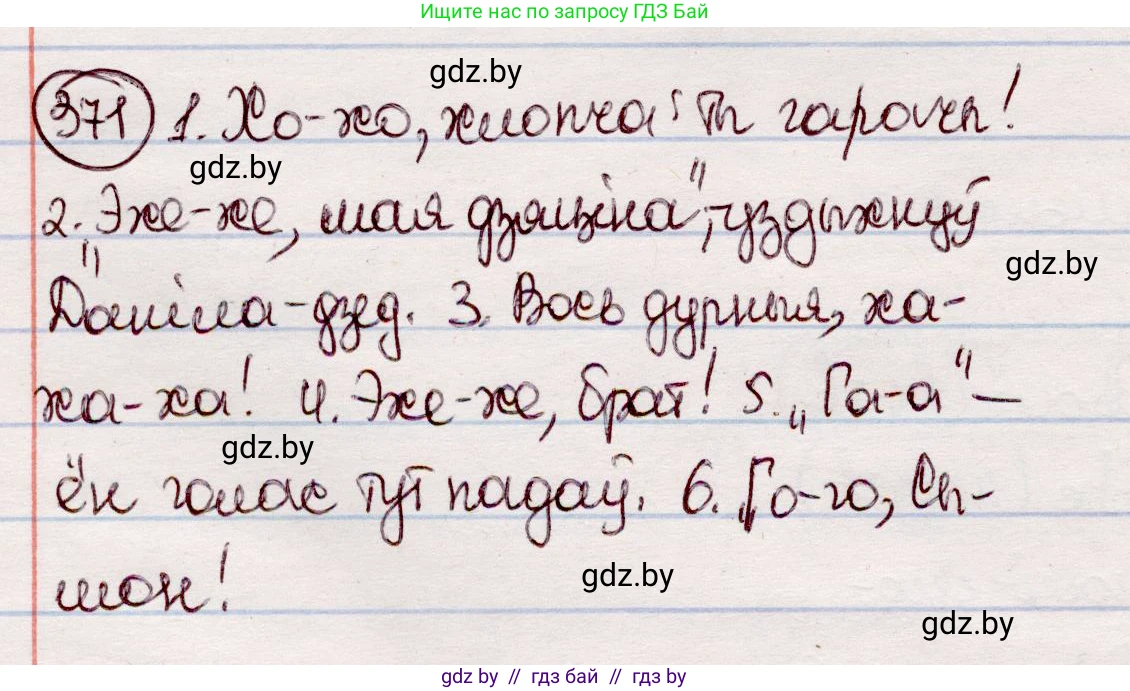 Ищите нас по запросу ГДЗ Бай
gdz.by
371 1. Хо-хо, хлопча! Ты гарачы!
gdz.by
2. „Эхе-хе, мая дзяціна", – уздыхнуў
gdz.by
Даніла-дзед. 3. Вось дурныя, ха-
ха-ха! 4. Эхе-хе, брат! 5. „Га-а" —
gdz.by
ён голас тут падаў. 6. Го-го, Сы-
gdz.by
мон!
gdz.by
gdz by // гдз бай // гдз by